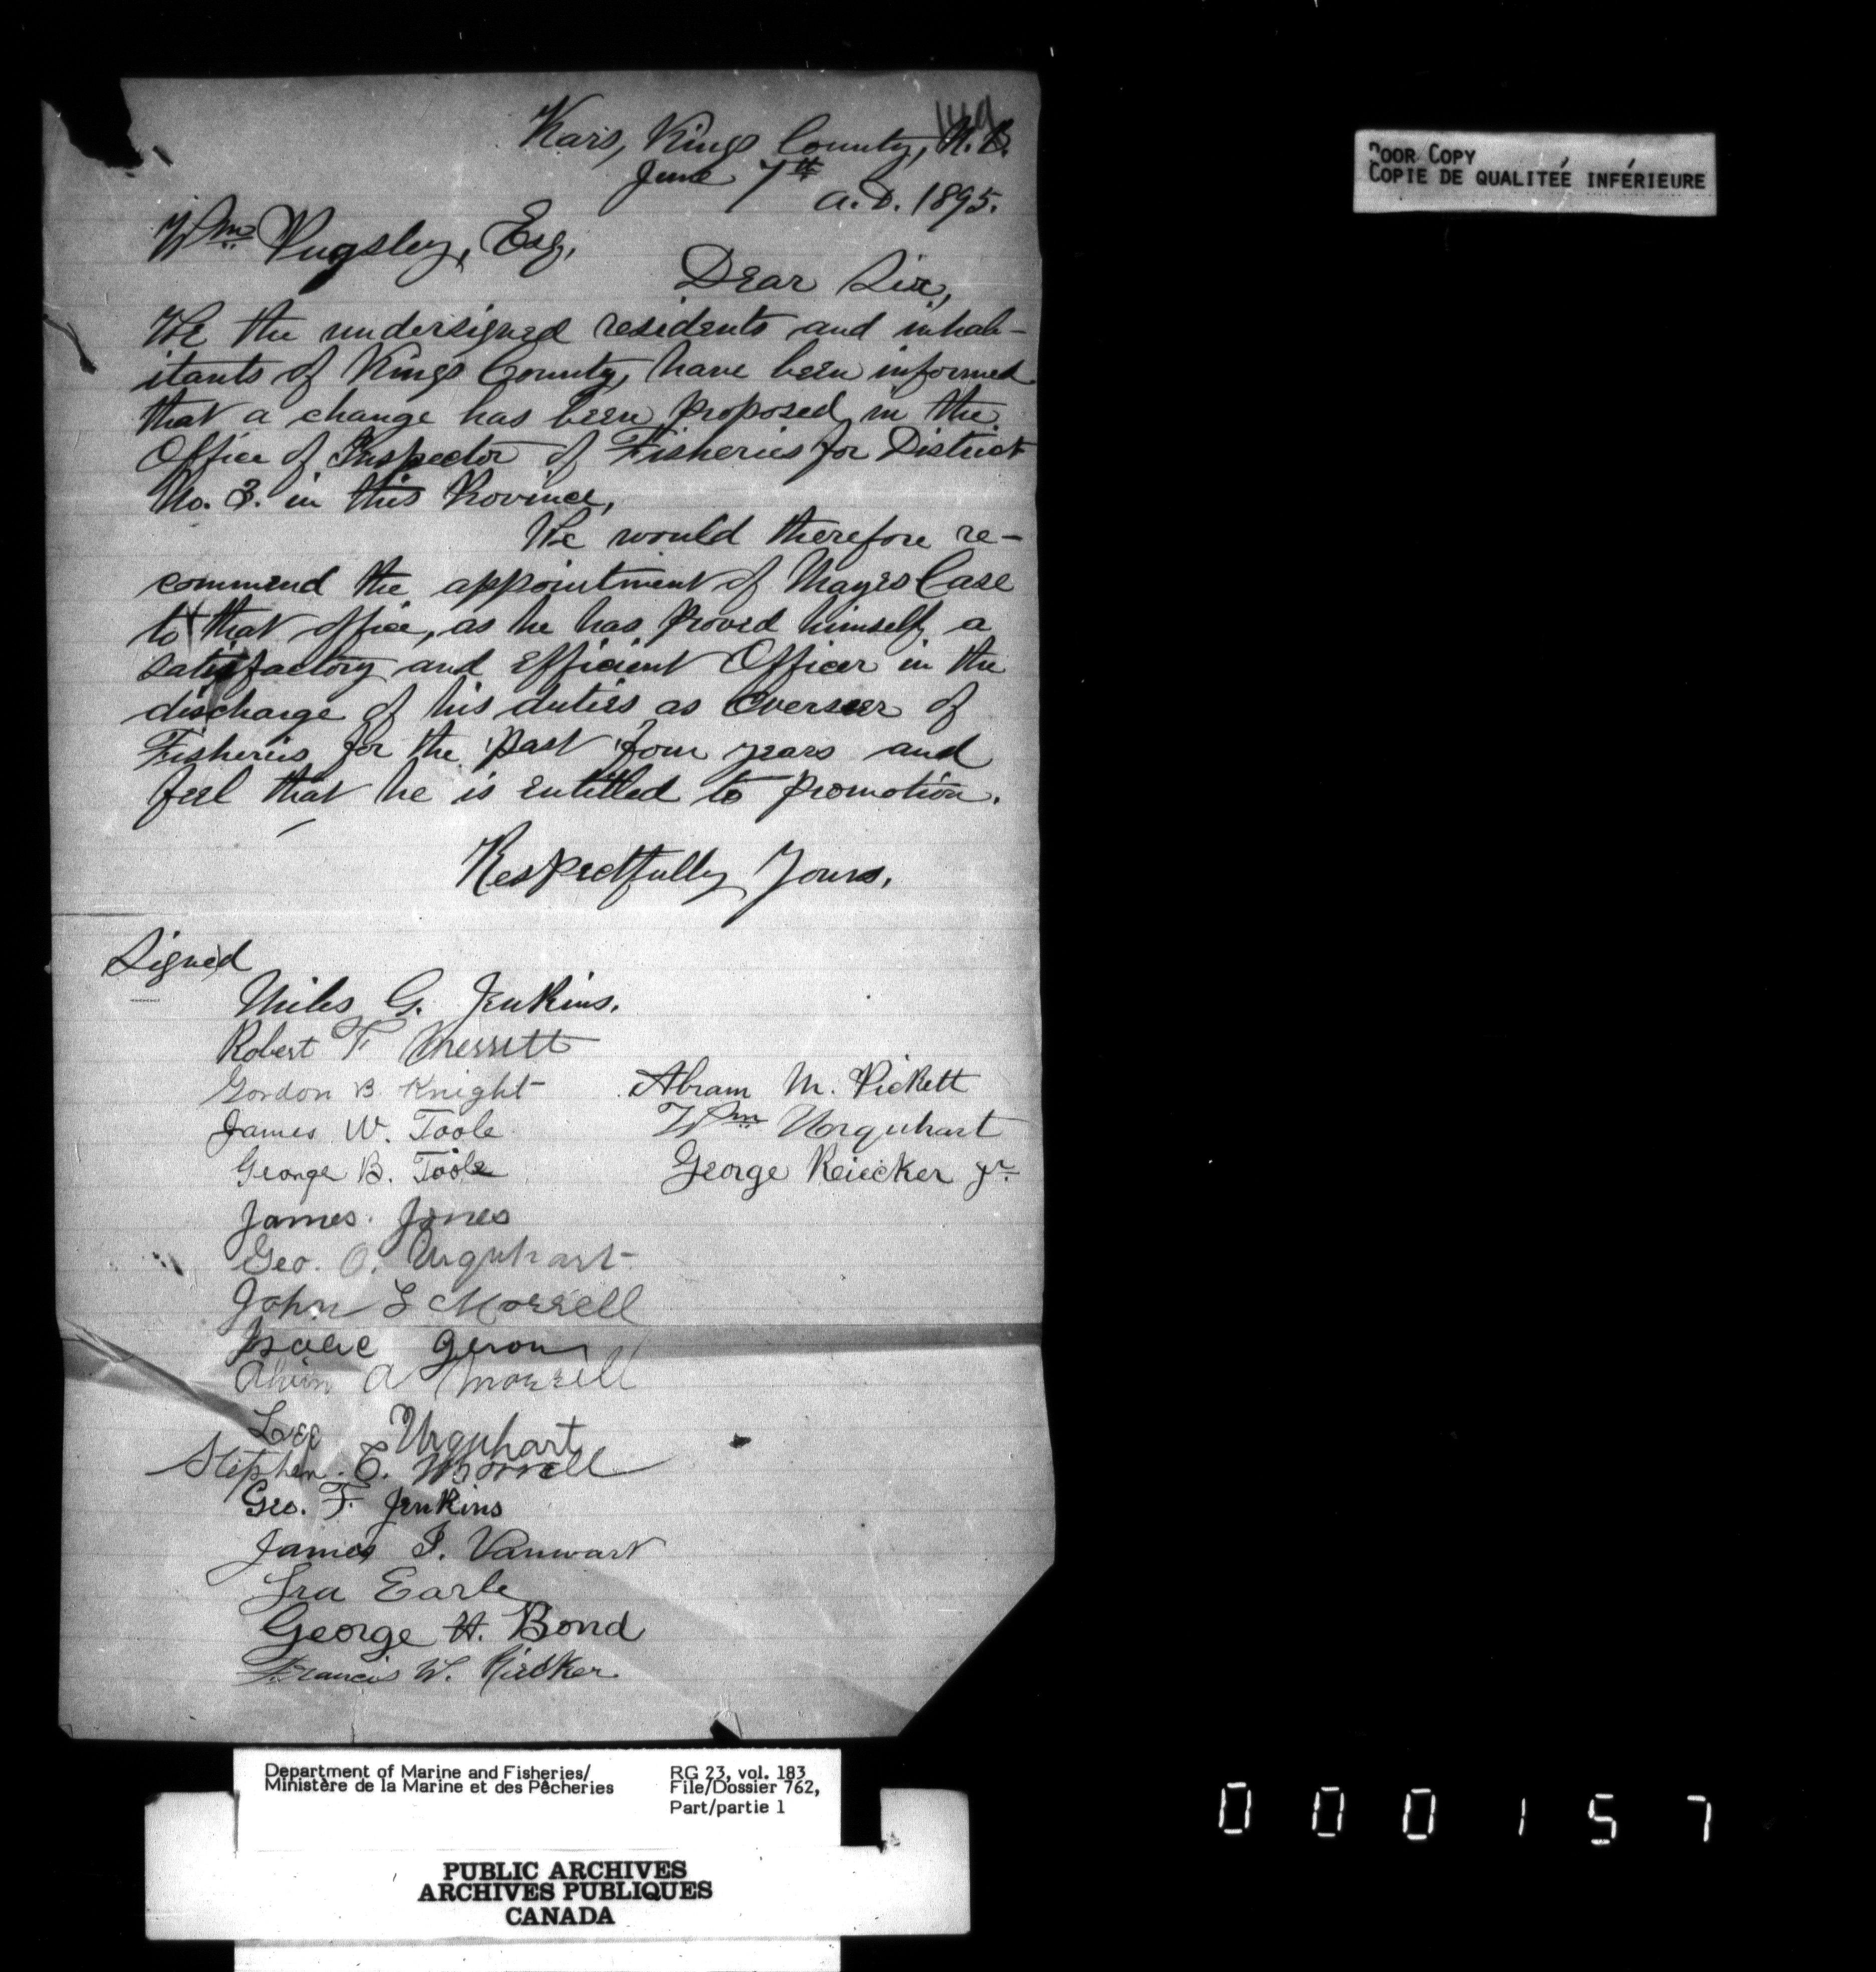 149
Kars, Kings County, N.B.
June 7th
A.D. 1895.
Wm Pugsley, Esq,
Dear Sir,
We the undersigned residents and inhab-
itants of Kings County, have been informed
that a change has been proposed in the
Office of Inspector of Fisheries for District
No. 3. in this Province,
We would therefore re-
commend the appointment of Mayes Case
to that office, as he has proved himself a
satisfactory and efficient Officer in the
discharge of his duties as Overseer of
Fisheries for the past four years and
feel that he is entitled to promotion.
Respectfully Yours,
Signed
Miles G. Jenkins.
Robert F Merritt
Gordon B. Knight
James W. Toole
George B. Toole
James Jones
Geo. O. Urquhart
John S Morrell
Isaac
Alvin A Morrell
Lee Urquhart
Stephen E. Morrell
Geo. F. Jenkins
James I. Vanwart
Ira Earle
George H. Bond
Francis W. Riecker
Abram M. Pickett
Wm Urquhart
George Reiecker Jr.
POOR COPY
COPIE DE QUALITEÉ INFÉRIEURE
Department of Marine and Fisheries/
Ministère de la Marine et des Pêcheries
RG 23, vol. 183
File/Dossier 762,
Part/partie 1
PUBLIC ARCHIVES
ARCHIVES PUBLIQUES
CANADA
000157